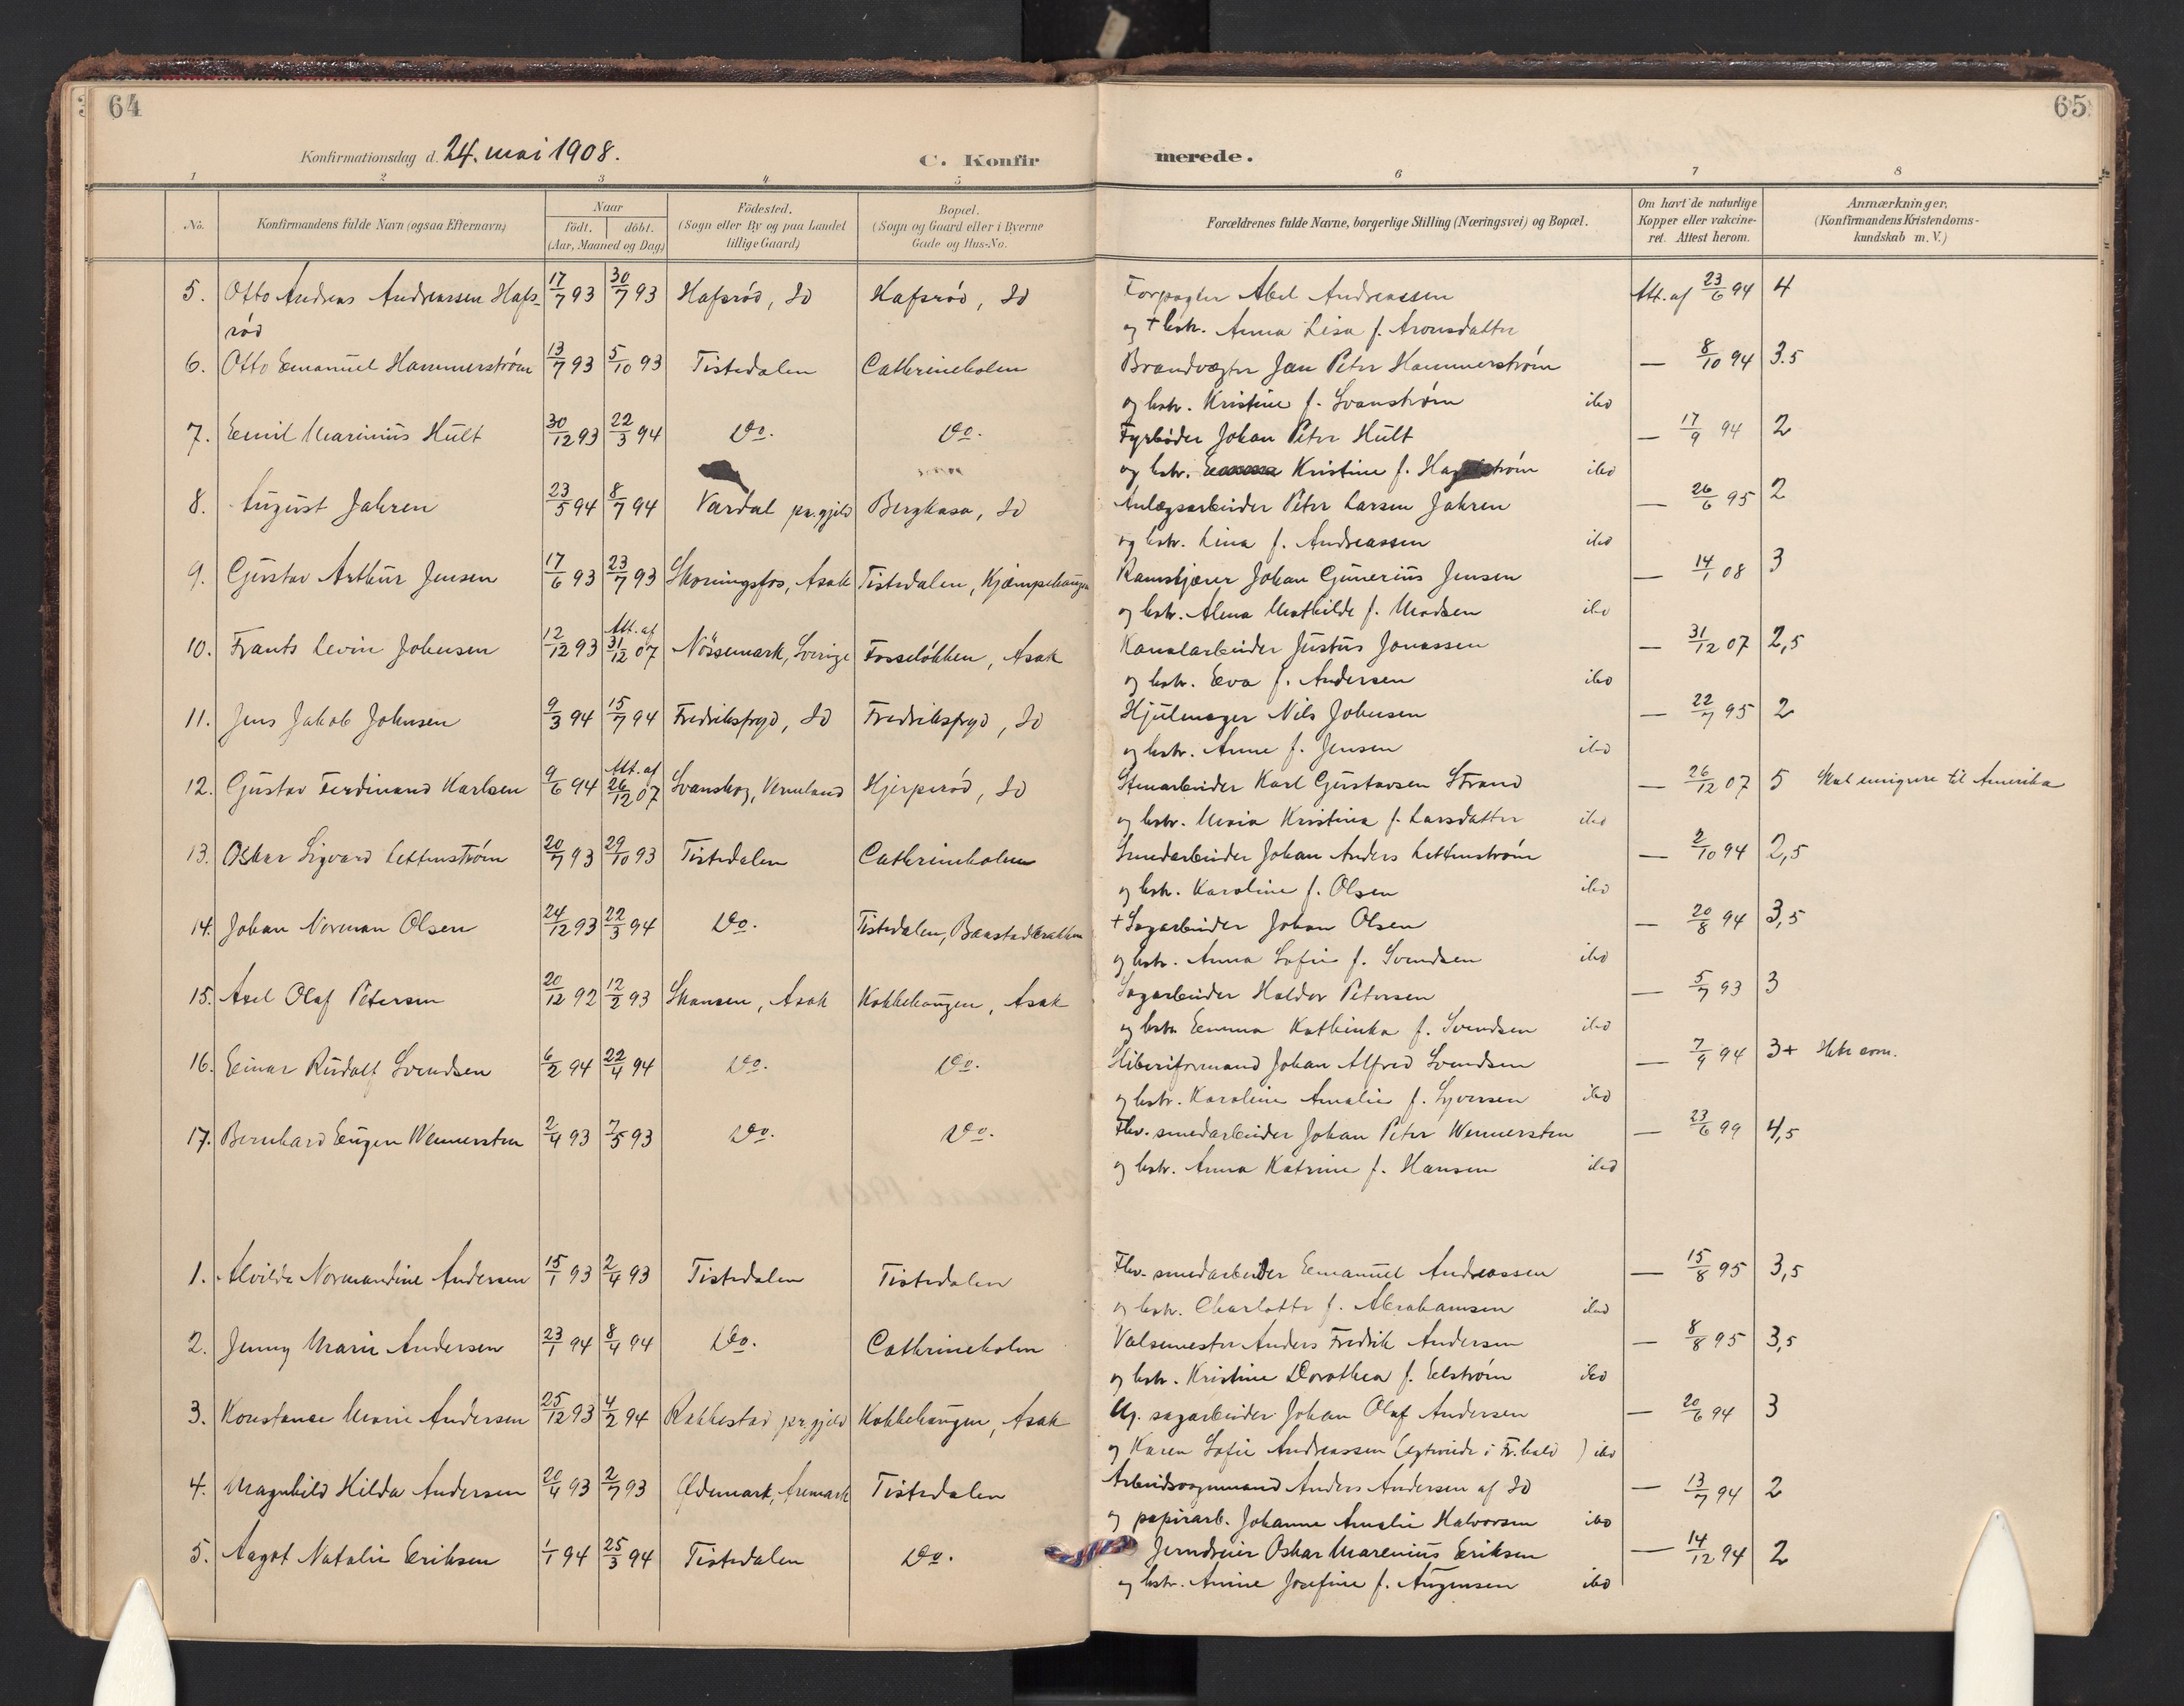 64
65
Konfirmationsdag d. 24. mai 1908.
C. Konfirmerede.
1 2 3 4 5 6 7 8
No. Konfirmandens fulde Navn (ogsaa Efternavn) Naar födt. döbt. (Aar, Maaned og Dag) Födested. (Sogn eller By og paa Landet tillige Gaard) Bopæl. (Sogn og Gaard eller i Byerne Gade og Hus-No. Forældrenes fulde Navne, borgerlige Stilling (Næringsvei) og Bopæl. Om havt de naturlige Kopper eller vakcineret. Attest herom. Anmærkninger, (Konfirmandens Kristendomskundskab m. V.)
5. Otto Andreas Andreassen Hafs- 17/7 93 30/7 93 Hafsrød, Id Hafsrød, Id Forpagter Abel Andreassen Att. af 23/6 94 4
rød og + hstr. Anna Lisa f. Aronsdatter
6. Otto Emanuel Hammerstrøm 13/7 93 5/10 93 Tistedalen Cathrineholm Brandvagter Jan Peter Hammerstrøm — 8/10 94 3.5
og hstr. Kristine f. Svanstrøm ibd
7. Emil Marinius Hult 30/12 93 22/3 94 Do. Do. Fyrbøder Johan Peter Hult — 17/9 94 2
og hstr. Kristine f. ibd
8. August Jahren 23/5 94 8/7 94 Vardal pr.gjeld Berghasa, Id Anlægsarbeider Peter Larsen Jahren — 26/6 95 2
og hstr. Lina f. Andreassen ibd
9. Gustav Arthur Jensen 17/6 93 23/7 93 Skoningsfos, Asak Tistedalen, Kjæmpehaugen Kamskjærer Johan Gunerius Jensen — 14/1 08 3
og hstr. Alma Mathilde f. Madsen ibd
10. Frants Levin Johnsen 12/12 93 Att. af 31/12 07 Nössemark, Sverige Fosseløkken, Asak Kanalarbeider Justus Jonassen — 31/12 07 2,5
og hstr. Eva f. Andersen ibd
11. Jens Jakob Johnsen 9/3 94 15/7 94 Fredriksfryd, Id Fredriksfryd, Id Hjulmager Nils Johnsen — 22/7 95 2
og hstr. Anne f. Jensen ibd
12. Gustav Ferdinand Karlsen 9/6 94 Att. af 26/12 07 Svanskog, Vermland Hjerperød, Id Stenarbeider Karl Gustavsen Strand — 26/12 07 5 Skal emigrere til Amerika
og hstr. Maria Kristina f. Larsdatter ibd
13. Oskar Sigvard Lettenstrøm 20/7 93 29/10 93 Tistedalen Cathrineholm Smedarbeider Johan Anders Lettenstrøm — 2/10 94 2,5
og hstr. Karoline f. Olsen ibd
14. Johan Norman Olsen 24/12 93 22/3 94 Do. Tistedalen, Baastadbrakken + Sagarbeider Johan Olsen — 20/8 94 3,5
og hstr. Anna Sofie f. Svendsen ibd
15. Axel Olaf Petersen 20/12 92 12/2 93 Skansen, Asak Kokkehaugen, Asak Sagarbeider Haldor Petersen — 5/7 93 3
og hstr Emma Kathinka f. Svendsen ibd
16. Einar Rudolf Svendsen 6/2 94 22/4 94 Do. Do. Sliberiformand Johan Alfred Svendsen — 7/9 94 3+
og hstr. Karoline Amalie f. Syversen ibd
17. Bernhard Eugen Wennersten 2/4 93 7/5 93 Do. Do. Fhv. smedarbeider Johan Peter Wennersten — 23/6 99 4,5
og hstr. Anna Katrine f. Hansen ibd
1. Alvilde Normandine Andersen 15/1 93 2/4 93 Tistedalen Tistedalen Fhv. smedarbeider Emanuel Andreassen — 15/8 95 3,5
og hstr. Charlotte f. Abrahamsen ibd
2. Jenny Marie Andersen 23/1 94 8/4 94 Do. Cathrineholm Valsemester Anders Fredrik Andersen — 8/8 95 3,5
og hstr. Kristine Dorothea f. Edstrøm ibd
3. Konstanse Marie Andersen 25/12 93 4/2 94 Rakkestad pr.gjeld Kokkehaugen, Asak Ug. sagarbeider Johan Olaf Andersen — 20/6 94 3
og Karen Sofie Andreassen (egtviede i Fr.hald ) ibd
4. Magnhild Hilda Andersen 20/4 93 2/7 93 Ødemark, Aremark Tistedalen Arbeidsogmand Anders Andersen af Id — 13/7 94 2
og papirarb. Johanne Amalie Halvorsen ibd
5. Aagot Natalie Eriksen 1/1 94 25/3 94 Tistedalen Do. Jerndreier Oskar Marenius Eriksen — 14/12 94 2
og hstr. Anine Josefine f. Augensen ibd